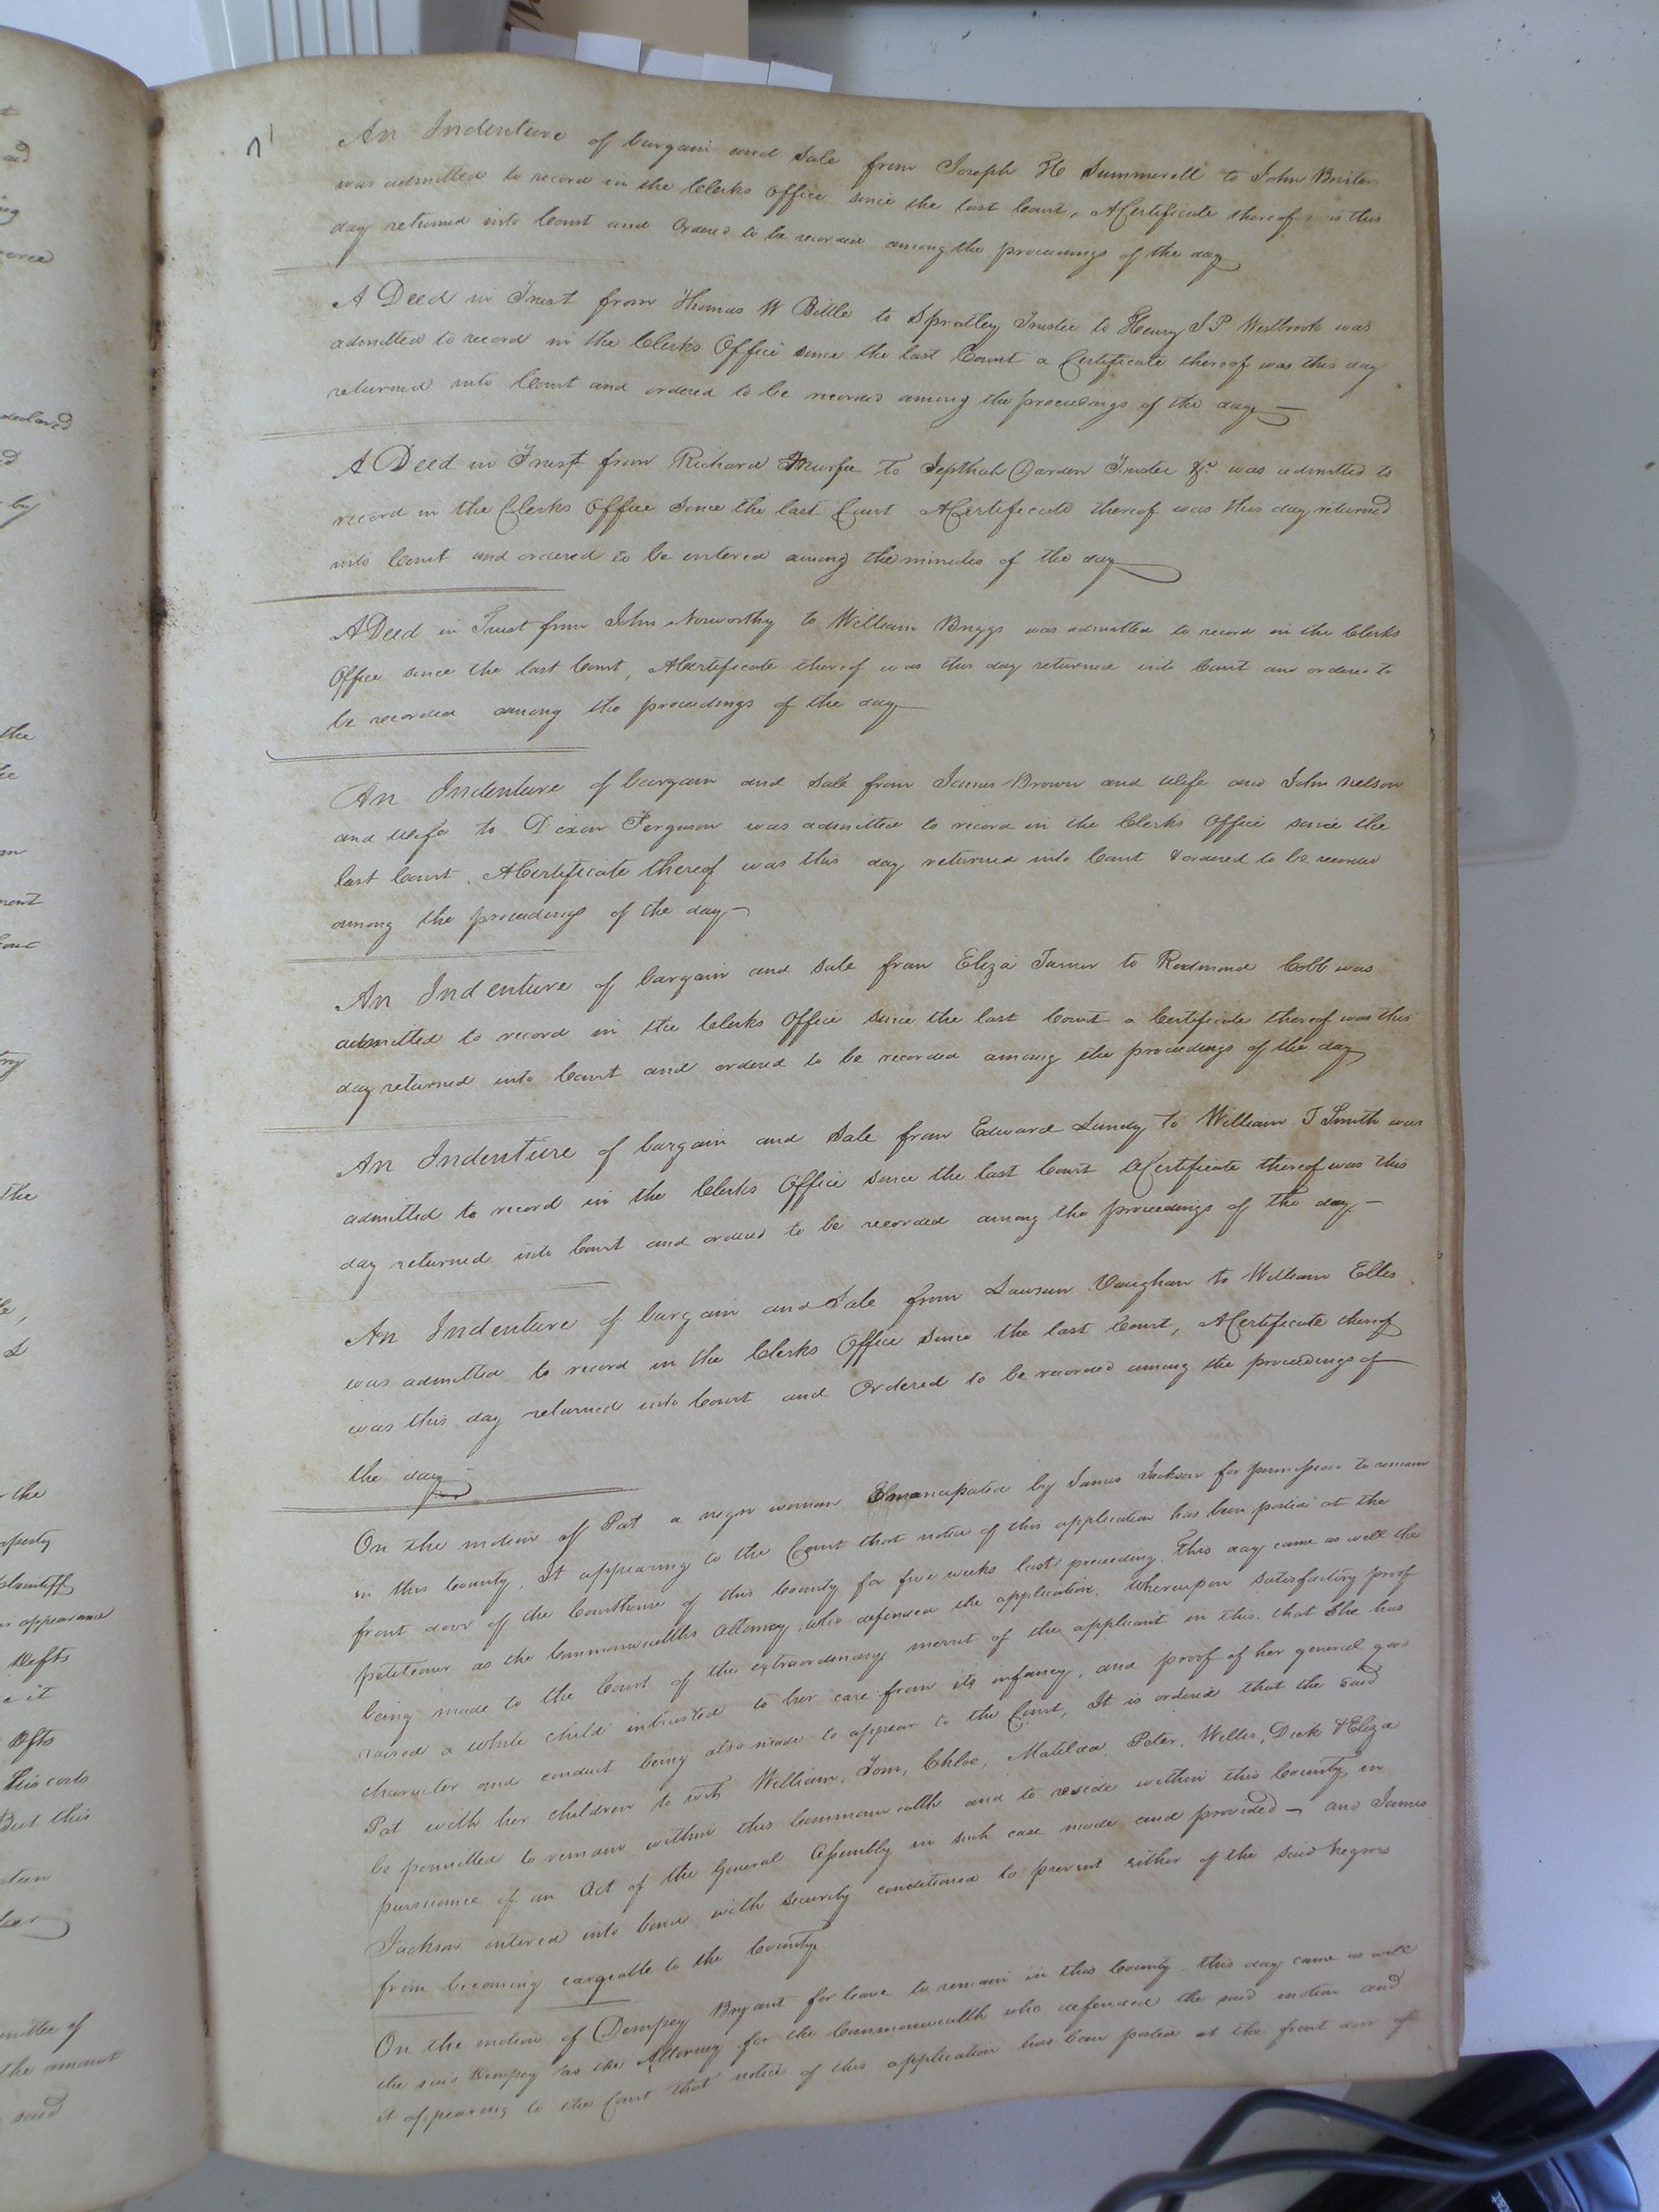 An Indenture of bargain and Sale from Joseph H Summerell to John Brister
was admitted to record in the Clerks Office since the last Court, A Certificate thereof was this
day returned into Court and Ordered to be recorded among the proceedings of the day
A Deed in Trust from Thomas W Bittle to Spratley Trustee to Henry J P Westbrook was
admitted to record in the Clerks Office since the last Court a Certificate thereof was this day
returned into Court and ordered to be recorded among the proceedings of the day
A Deed in Trust from Richard Murfee To Jepthah Darden Trustee &c. was admitted to
record in the Clerks Office Since the last Court A Certificate thereof was this day returned
into Court and ordered to be entered among the minutes of the day
A Deed in Trust from John Norworthy to William Briggs was admitted to record in the Clerks
Office since the last Court, A Certificate thereof was this day returned into Court and ordered to
be recorded among the proceedings of the day
An Indenture of bargain and Sale from James Brown and Wife and John Nelson
and Wife to Dixon Ferguson was admitted to record in the Clerks Office since the
last Court. A Certificate thereof was this day returned into Court & ordered to be recorded
among the proceedings of the day
An Indenture of bargain and Sale from Eliza Turner to Redmond Cobb was
admitted to record in the Clerks Office since the last Court a Certificate thereof was this
day returned into Court and ordered to be recorded among the proceedings of the day
An Indenture of bargain and Sale from Edward Lundy to William T Smith was
admitted to record in the Clerks Office since the last Court A Certificate thereof was this
day returned into Court and ordered to be recorded among the proceedings of the day
An Indenture of bargain and Sale from Lawson Vaughan to William Ellis
was admitted to record in the Clerks Office since the last Court, A Certificate thereof
was this day returned into Court and Ordered to be recorded among the proceedings of
the day
On the motion of Pat a negro woman Emancipated by James Jackson for permission to remain
in this County, It appearing to the Court that notice of this application has been posted at the
front door of the Courthouse of this County for five weeks last preceeding. This day came as well the
petitioner as the Commonwealths Attorney, who defended the application, Whereupon satisfactory proof
being made to the Court of the extraordinary merit of the applicant in this, that She has
raised a white child intrusted to her care from its infancy, and proof of her general good
character and conduct being also made to appear to the Court, It is ordered that the said
Pat with her children to wit William, Tom, Chloe, Matilda, Peter, Willis, Dick & Eliza
be permitted to remain within this Commonwealth and to reside within this County in
pursuance of an Act of the General Assembly in such case made and provided — and James
Jackson entered into bond with security conditioned to prevent either of the said negroes
from becoming cargeable to the County
On the motion of Dempsey Bryant for leave to remain in this County this day came as well
the said Dempsey as the Attorney for the Commonwealth who defended the said motion and
it appearing to the Court that notice of this application has been posted at the front door of